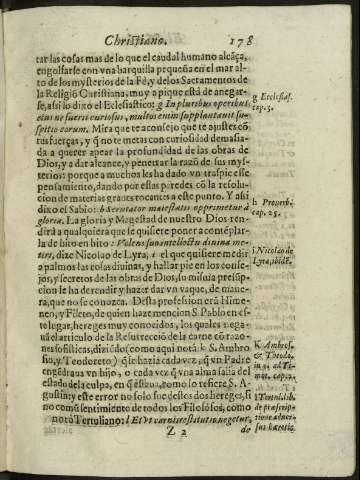 Christiano. 178
tar las cosas mas de lo que el caudal humano alcãça,
engolfarse con vna barquilla pequeña en el mar al-
to de los mysterios de la Fè, y de los Sacramentos de
la Religiõ Christiana, muy a pique està de anegar-
se, assi lo dixo el Eclesiastico: g In pluribus operibus
eius ne fueris curiosus, multos enim supplantauit su-
spitio eorum. Mira que te aconsejo que te ajustes cõ
tus fuerças, y q̃ no te metas con curiosidad demasia-
da a querer apear la profundidad de las obras de
Dios, y a dar alcance, y penetrar la razõ de sus mys-
terios: porque a muchos les ha dado vn traspie esse
pensamiento, dando por essas paredes cõ la resolu-
cion de materias graues tocantes a este punto. Y assi
dixo el Sabio: h Scrutator maiestatis opprimetur à
gloria. La gloria y Magestad de nuestro Dios ren-
dirà a qualquiera que se quisiere poner a contarse-
la de hito en hito: Volens suo intellectu diuina me-
tiri, dize Nicolao de Lyra, i el que quisiere medir
a palmos las cosas diuinas, y hallar pie en los conse-
jos, y secretos de las obras de Dios, su misma presūp-
cion le ha de rendir y hazer dar vn vaque, de mane-
ra, que no se conozca. Desta profession erã Hime-
neo, y Fileto, de quien haze mencion S. Pablo en es-
te lugar, hereges muy conocidos, los quales nega-
uã el articulo de la Resurrecciõ de la carne cõ razo-
nes sofisticas, diziẽdo (como aqui notã k S. Ambro-
sio, y Teodoreto) q̃ se hazia cada vez, q̃ vn Padre
engẽdraua vn hijo, o cada vez q̃ vna alma salia del
estado de la culpa, en q̃ estaua, como lo refiere S. A-
gustin: y este error no solo fue destos dos hereges, si
no comũ sentimiento de todos los Filosofos, como
notò Tertuliano: l Et vt carnis restitutio negetur,
Z 2 de
g Ecclesiast.
cap. 3.
h Prouerb.
cap. 25.
i Nicolao de
Lyra, ibidẽ.
K Ambros.
& Theodo.
in 2. ad Ti-
mot. cap. 2.
l Tertul. lib.
de præscrip-
tione aduer-
sus hæretic.